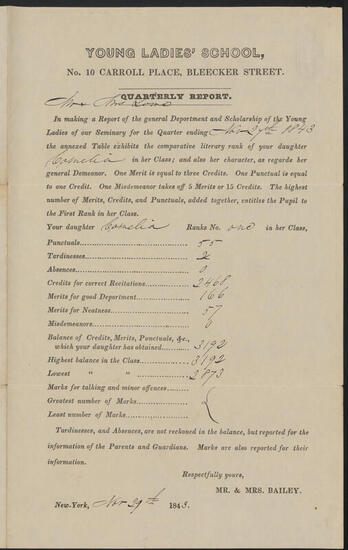 YOUNG LADIES' SCHOOL,
No. 10 CARROLL PLACE, BLEECKER STREET.
QUARTERLY REPORT.
Mr & Mrs
In making a Report of the general Department and Scholarship of the Young
Ladies of our Seminary for the Quarter ending Nov 29th 1843
the annexed Table exhibits the comparative literary rank of your daughter
Cornelia in her Class; and also her character, as regards her
general Demeanor. One Merit is equal to three Credits. One Punctual is equal
to one Credit. One Misdemeanor takes off 5 Merits or 15 Credits. The highest
number of Merits, Credits, and Punctuals, added together, entitles the Pupil to
the First Rank in her Class.
Your daughter Cornelia Ranks No. one in her Class,
Punctuals 55
Tardinesses
Absences 0
Credits for correct Recitations 2468
Merits for good Department 166
Merits for Neatness 57
Misdemeanors 6
Balance of Credits, Merits, Punctuals, &c.,
which your daughter has obtained 3192
Highest balance in the Class 3192
Lowest " " 2873
Marks for talking and minor offences
Greatest number of Marks
Least number of Marks
Tardinesses, and Absences, are not reckoned in the balance, but reported for the
information of the Parents and Guardians. Marks are also reported for their
information.
Respectfully yours,
MR. & MRS. BAILEY.
New-York, Nov 29th 1843.